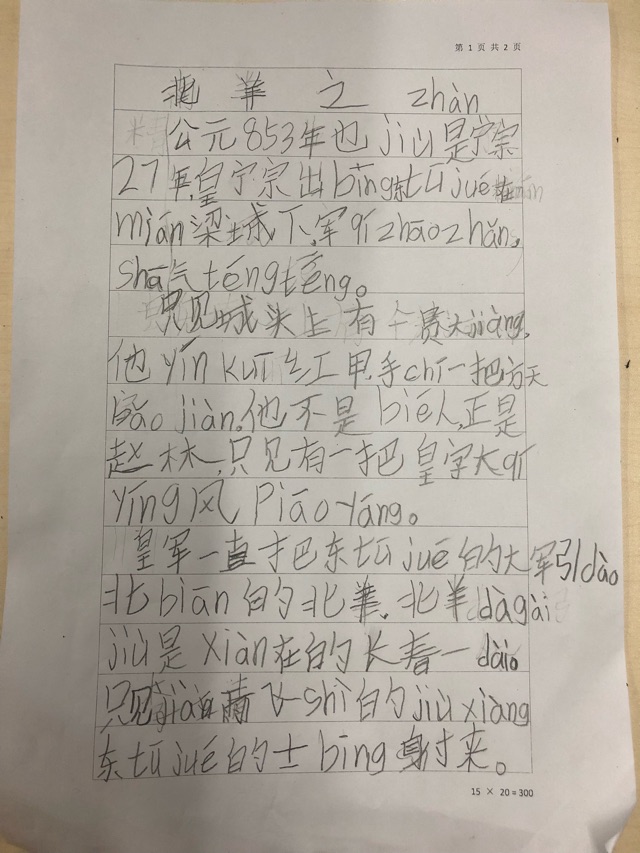 第 1 页 共 2 页
羊 之 zhàn
公元853年也jiù是宁宗
27年,皇宁宗出bīng东tū jué在
mián梁城下,军qí zhāo zhǎn,
shā气téng téng。
只见城头上有个赛大jiàng,
他 yín kuī 红甲,手chí一把方天
bǎo jiàn,他不是biéん,正是
赵林,只见有一把皇字大qí
yíng风 piāo yáng。
皇军一直才把东tū jué的大军引dào
北biān的北羊,北羊dà gài
jiù是xiàn在的长春一dài。
只见jiàn雨飞shì的jiù xiàng
东tū jué的士bīng身过来。
15 × 20 = 300